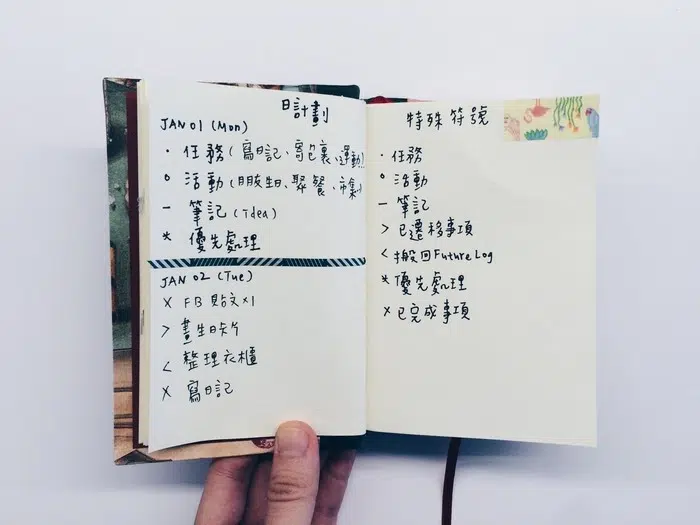 日計劃
JAN 01 (Mon)
· 任務(寫日記、寄包裹、運動)
° 活動(朋友生日、聚餐、市集)
— 筆記(idea)
* 優先處理
JAN 02 (Tue)
× FB 貼文×1
> 畫生日卡片
< 整理衣櫃
× 寫日記
特殊符號
· 任務
° 活動
— 筆記
> 已遷移事項
< 搬回Future Log
* 優先處理
× 已完成事項